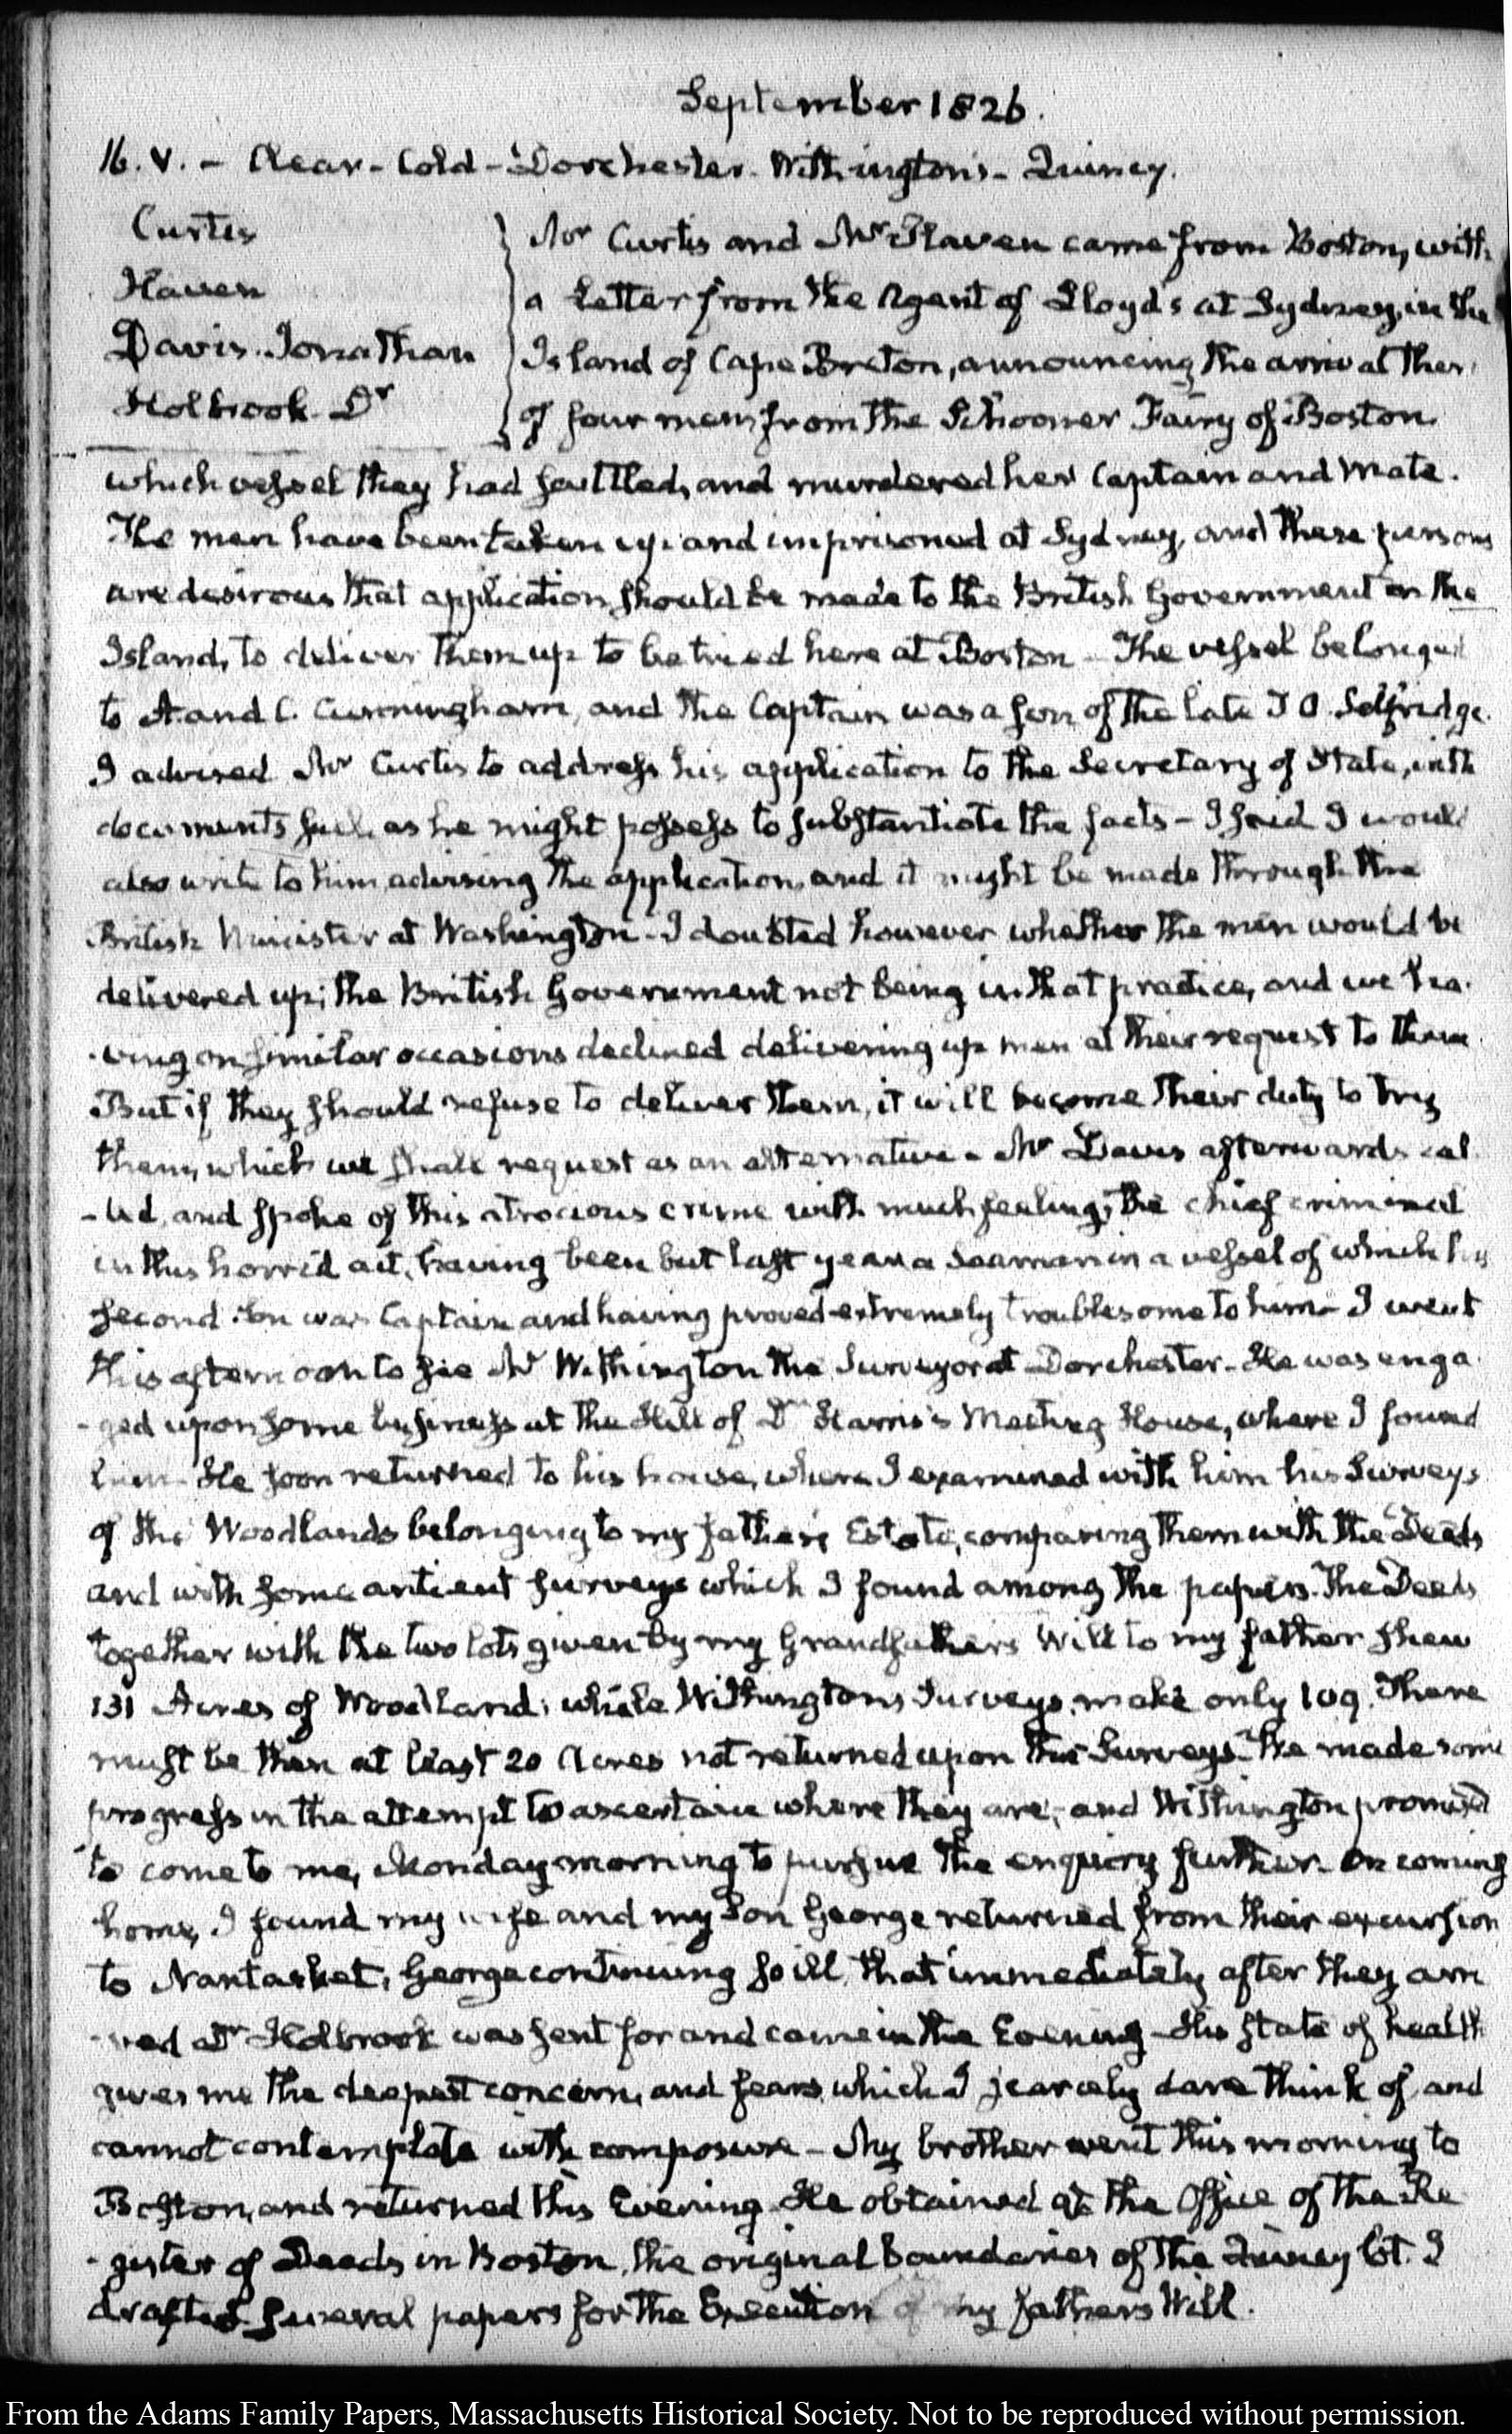 September 1826.
16. V. - Clear - Cold - Dorchester. Withington's - Quincy.
Curtis
Haven
Davis. Jonathan
Holbrook. Dr
Mr Curtis and Mr Haven came from Boston, with
a Letter from the Agent of Lloyd's at Sydney, in the
Island of Cape Breton, announcing the arrival ther
of four men from the Schooner Fairy of Boston
which vessel they had scuttled, and murdered her Captain and Mate.
The men have been taken up and imprisoned at Sydney, and these persons
are desirous that application should be made to the British Government on the
Island, to deliver them up to be tried here at Boston - The vessel belonged
to A. and C. Cunningham, and the Captain was a son of the late T O. Selfridge.
I advised Mr Curtis to address his application to the Secretary of State, with
documents such as he might possess to substantiate the facts - I said I would
also write to him advising the application, and it might be made through the
British Minister at Washington - I doubted however whether the men would be
delivered up; the British Government not being in that practice, and we ha-
-ving on similar occasions declined delivering up men at their request to them.
But if they should refuse to deliver them, it will become their duty to try
them, which we shall request as an alternative - Mr Davis afterwards cal
-led, and spoke of this atrocious crime with much feeling; the chief criminal
in this horrid act, having been but last year a Seaman in a vessel of which his
second Son was Captain and having proved extremely troublesome to him - I went
this afternoon to see Mr Withington the Surveyor at Dorchester - He was enga-
-ged upon some business at the Hill of Dr Harris's Meeting House, where I found
him - He soon returned to his house, where I examined with him his Surveys
of the Woodlands belonging to my father's Estate, comparing them with the Deeds
and with some antient surveys which I found among the papers. The Deeds
together with the two lots given by my Grandfathers Will to my father shew
131 Acres of Woodland; while Withingtons Surveys, make only 109. There
must be then at least 20 Acres not returned upon the Surveys. We made some
progress in the attempt to ascertain where they are; and Withington promised
to come to me, Monday morning to pursue the enquiry further. On coming
home, I found my wife and my Son George returned from their excursion
to Nantasket, George continuing so ill, that immediately after they arri
-ved Dr Holbrook was sent for and came in the Evening - His state of health
gives me the deepest concern, and fears which I scarcely dare think of, and
cannot contemplate with composure - My brother went this morning to
Boston, and returned this Evening. He obtained at the Office of the Re
-gister of Deeds in Boston, the original boundaries of the Quincy lot. I
drafted several papers for the Execution of my fathers Will.
From the Adams Family Papers, Massachusetts Historical Society. Not to be reproduced without permission.